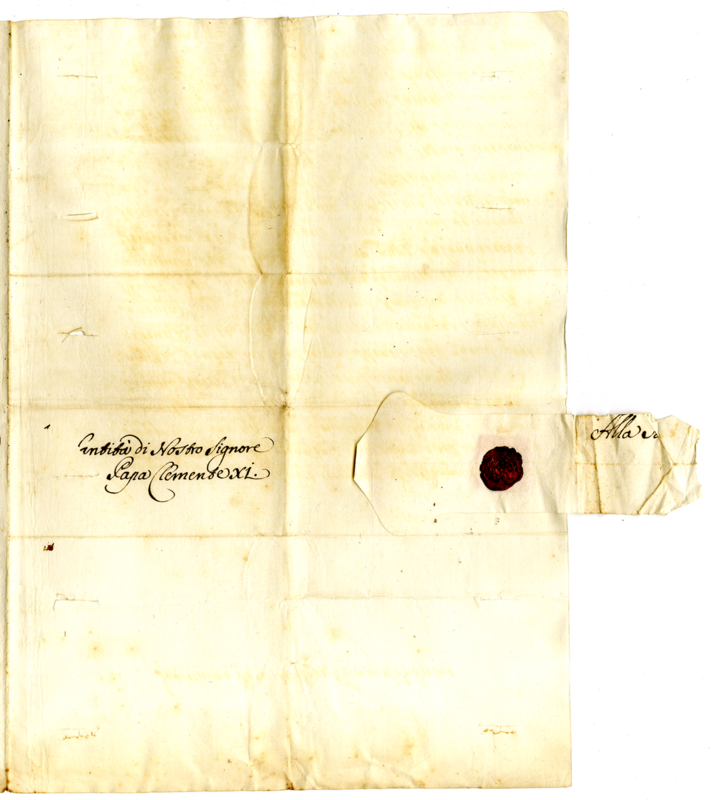 Alla S
antità di Nostro Signore
Papa Clemente XI.